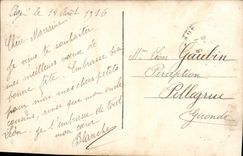 le 14 Août 1916
Chère Marraine
Je viens te souhaiter
mes meilleurs vœux de
bonne fête. Embrasse bien
pour moi mes chers petits
cousins, ainsi que mon oncle
Léon. Je t'embrasse de tout
mon cœur
Blanche
Mme Léon Gaubin
Perception
Pellegrue
Gironde